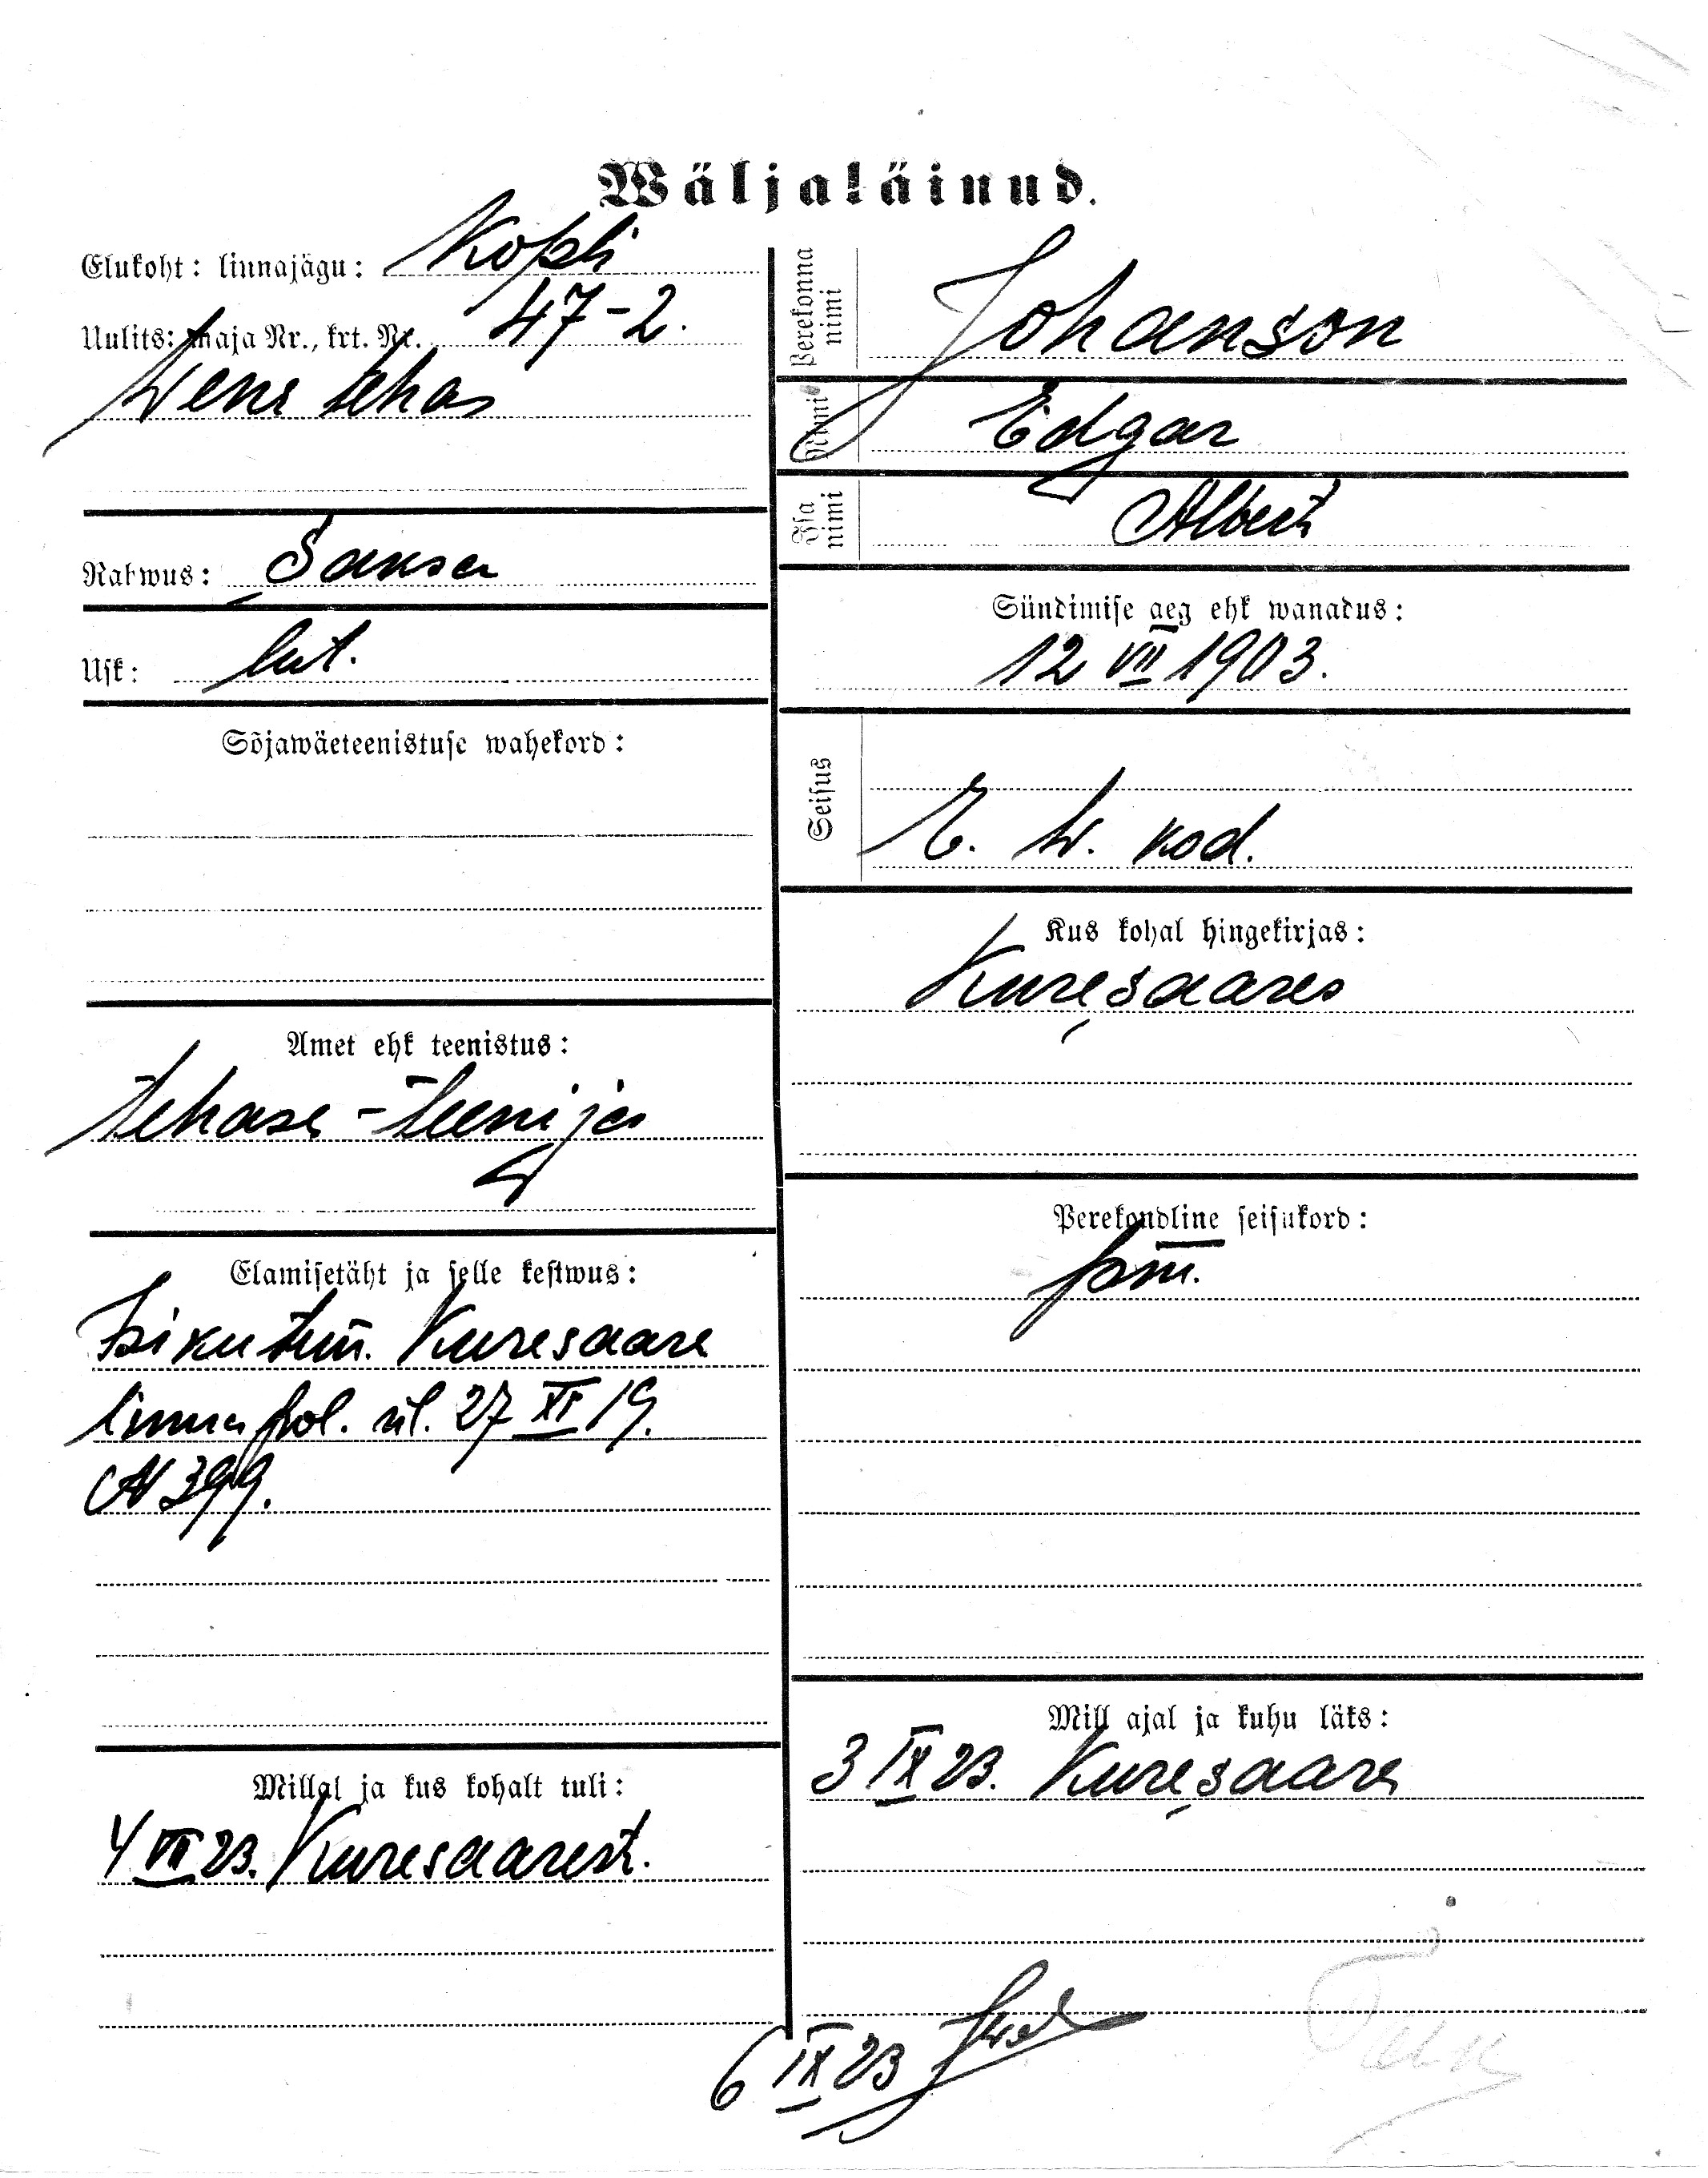 Wäljaläinud.
Elukoht: linnajägu: Kopli
Uulits: maja Nr., krt. Nr. 47-2.
Wene tehas
Rahwus: Saksa
Usk: lut.
Sõjawäeteenistuse wahekord:
Amet ehk teenistus:
tehase-teenija
Elamisetäht ja selle kestwus:
Isikutun. Kuresaare
linna pol. ül. 27 XI 19.
N 399.
Millal ja kus kohalt tuli:
4 VII 23. Kuresaarest.
Perekonna nimi Johanson
Nimi Edgar
Isa nimi Albert
Sündimise aeg ehk wanadus:
12 VII 1903.
Seisus
E. W. kod.
Kus kohal hingekirjas:
Kuresaares
Perekondline seisukord:
Mill ajal ja kuhu läks:
3 IX 23. Kuresaare
6 IX 23